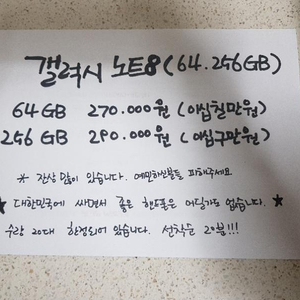 갤럭시 노트8 (64.256GB)
64GB 270.000원 (이십칠만원)
256GB 290.000원 (이십구만원)
* 잔상 많이 있습니다. 예민하신분들 피해주세요.
★ 대한민국에 싸면서 좋은 핸드폰은 어딜가도 없습니다. ★
수량 20대 한정되어 있습니다. 선착순 20분!!!